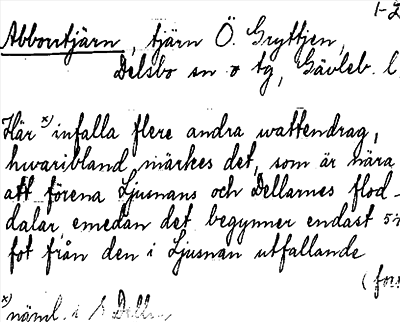 1-2
Abborrtjärn, tjärn Ö. Gryttjen,
Delsbo sn o tg, Gävleb. l
Här x) infalla flere andra wattendrag,
hwaribland märkes det, som är nära
att förena Ljusnans och Dellarnes flod-
dalar, emedan det begynner endast 5-
fot från den i Ljusnan utfallande
(fors
x) näml. i S Dellen